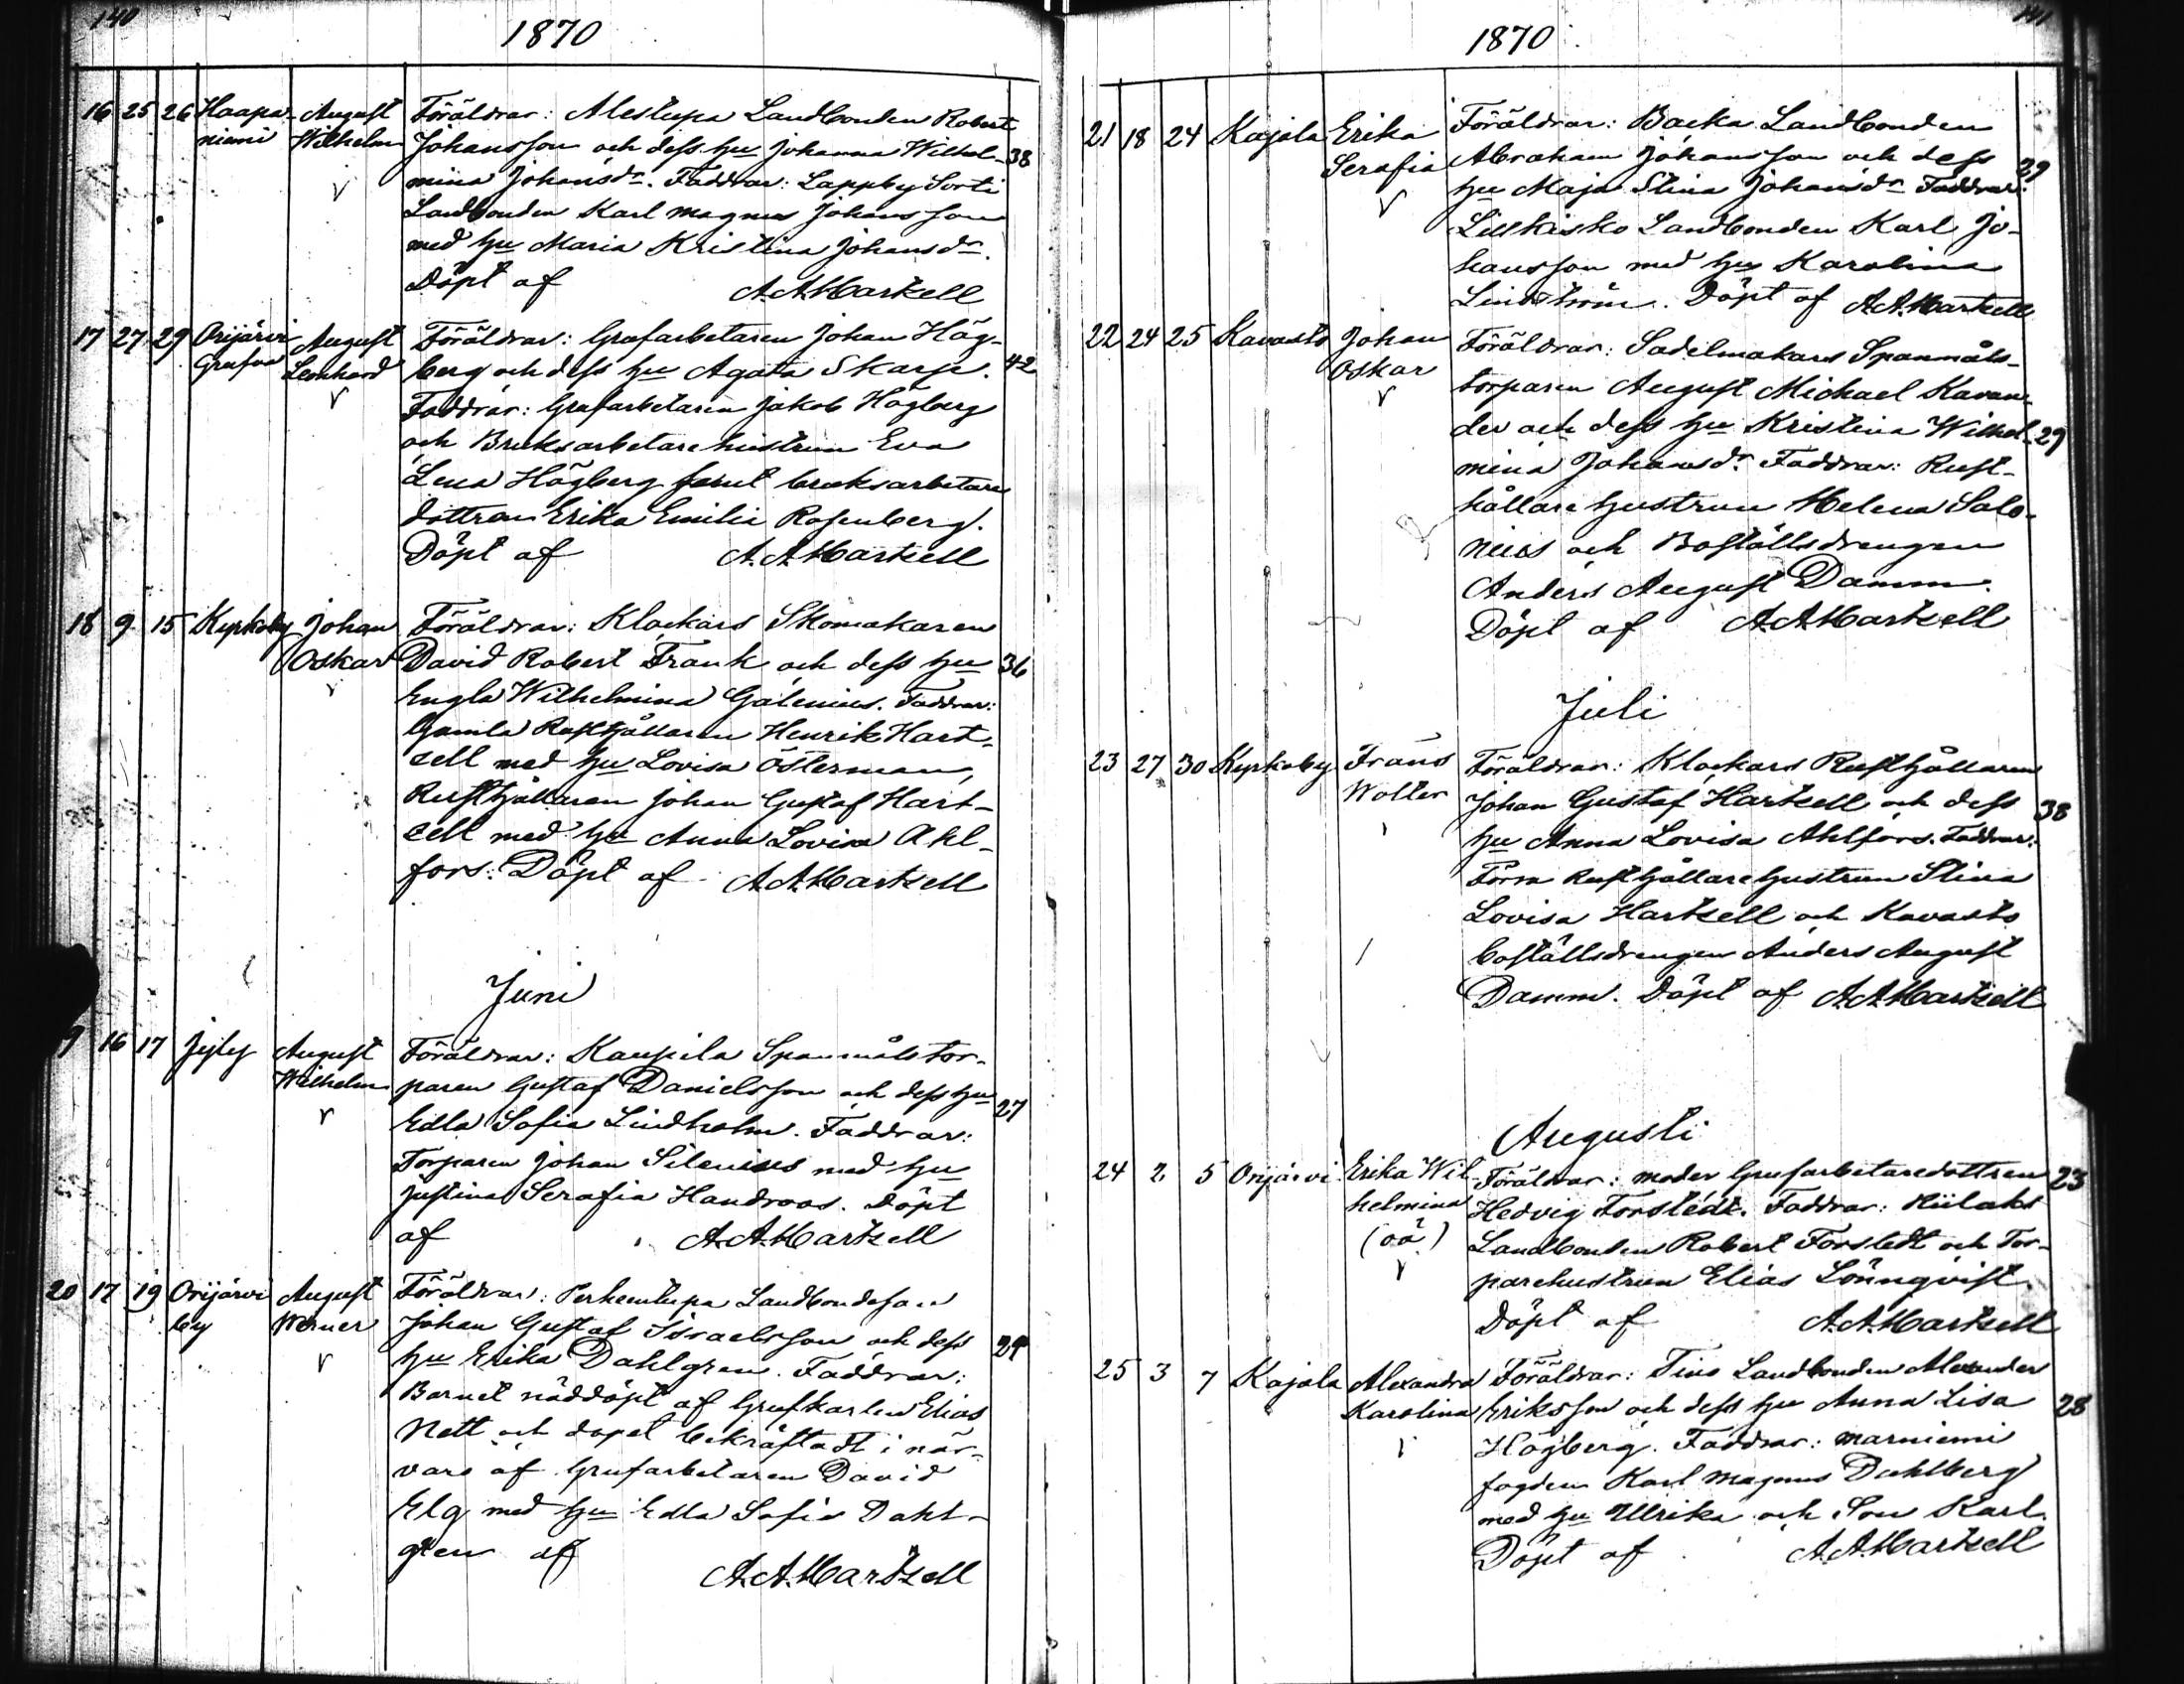 140
1870
16 25 26 Haapa- August Föräldrar: Alestupa Landbonden Robert
niemi Wilhelm Johansson och dess hu Johanna Wilhel- 38
mina Johansdr. Faddrar: Lappby Sorti
Landbonden Karl Magnus Johansson
med hu Maria Kristina Johansdr.
Döpt af A.A.Hartzell
17 27 29 Orijärvi August Föräldrar: Grufarbetaren Johan Hög-
Grufva Leonhard berg och dess hu Agata Skarp. 42
Faddrar: Grufarbetaren Jakob Högberg
och Bruksarbetare hustrun Eva
Lena Högberg samt bruksarbetare
dottren Erika Emilia Rosenberg.
Döpt af A.A.Hartzell
18 9 15 Kyrkoby Johan Föräldrar: Klockars Skomakaren
Oskar David Robert Frank och dess hu 36
Engla Wilhelmina Galenius. Faddrar:
Gamla Rusthållaren Henrik Hart-
zell med hu Lovisa Österman,
Rusthållaren Johan Gustaf Hart-
zell med hu Anna Lovisa Ahl-
fors. Döpt af A.A.Hartzell
Juni
9 16 17 Jyly August Föräldrar: Kaupila Spanmåls tor-
Wilhelm paren Gustaf Danielsson och dess hu 27
Edla Sofia Lindholm. Faddrar:
Torparen Johan Silenius med hu
Justina Serafia Handroos. Döpt
af A.A.Hartzell
20 17 19 Orijärvi August Föräldrar: Perkentupa Landbondeson
by Werner Johan Gustaf Israelsson och dess 29
hu Erika Dahlgren. Faddrar:
Barnet nöddöpt af Grufkarlen Elias
Nett och dopet bekräftadt i när-
varo af Grufarbetaren David
Elg med hu Edla Sofia Dahl-
gren af
A.A.Hartzell
141
1870
21 18 24 Kajala Erika Föräldrar: Backa Landbonden
Serafia Abraham Johansson och dess 29
hu Maja Stina Johansdr Faddrar:
Lillkisko Landbonden Karl Jo-
hansson med hu Karolina
Lindström. Döpt af A.A.Hartzell
22 24 25 Kavasto Johan Föräldrar: Sadelmakars Spanmåls-
Oskar torparen August Michael Kavan-
der och dess hu Kristina Wilhel- 29
mina Johansdr. Faddrar: Rust-
hållare hustrun Helena Salo-
nius och Boställsdrengen
Anders August Damm.
Döpt af A.A.Hartzell
Juli
23 27 30 Kyrkoby Frans Föräldrar: Klockars Rusthållaren
Wolter Johan Gustaf Hartzell och dess 38
hu Anna Lovisa Ahlfors. Faddrar:
Förra Rusthållarehustrun Stina
Lovisa Hartzell och Kavasto
boställsdrengen Anders August
Damm. Döpt af A.A.Hartzell
Augusti
24 2 5 Orijärvi Erika Wil- Föräldrar: moder Grufarbetaredottren 23
helmina Hedvig Forstedt. Faddrar: Hiilaks
(oä) Landbonden Robert Forstedt och Tor-
parehustrun Elias Lönnqvist.
Döpt af A.A.Hartzell
25 3 7 Kajala Alexandra Föräldrar: Tino Landbonden Alexander
Karolina Eriksson och dess hu Anna Lisa 28
Högberg. Faddrar: Marniemi
fogden Karl Magnus Dahlberg
med hu Ulrika och Son Karl.
Döpt af A.A.Hartzell